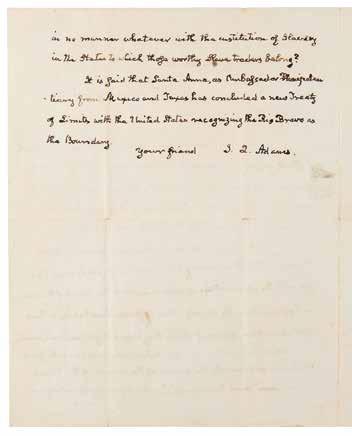 in no manner whatever with the institution of Slavery
in the States to which those worthy Slave traders belong?
It is said that Santa Anna, as Ambassador Plenipoten
tiary from Mexico and Texas has concluded a new Treaty
of Limits with the United States recognizing the Rio Bravo as
the Boundary
Your friend J. Q. Adams.